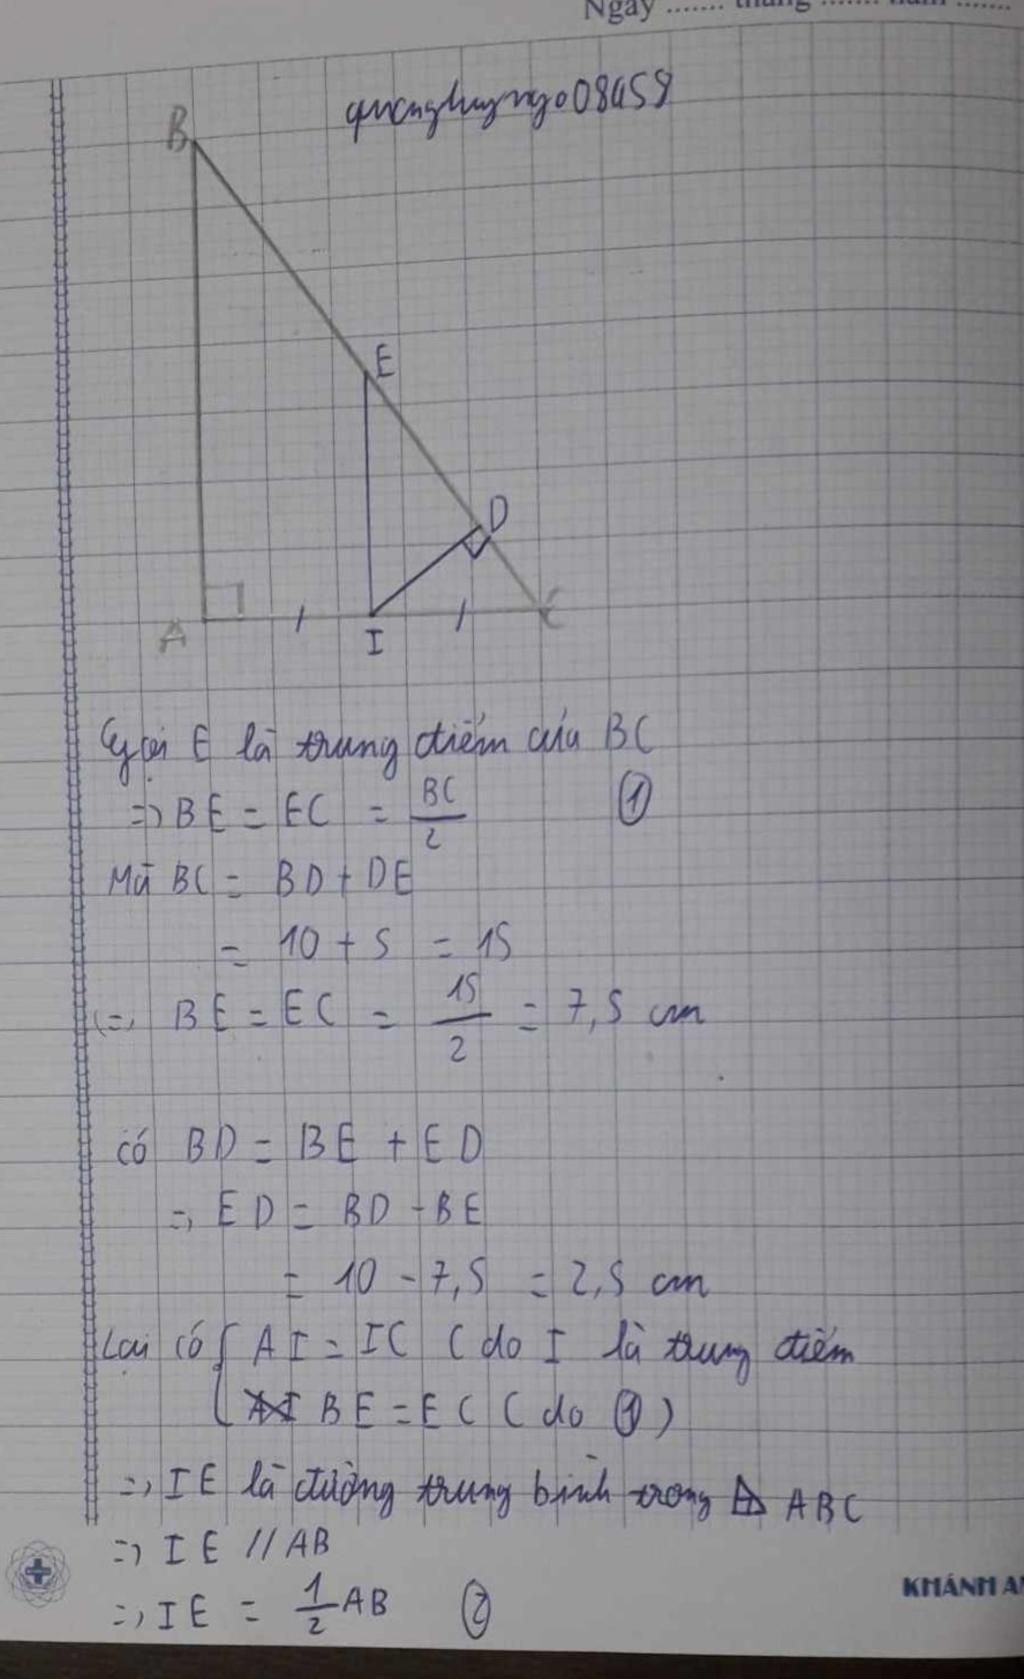 Ngày ....... tháng ....... năm .......
quanghuyngo08458
B
E
D
A
I
C
Gọi E là trung điểm của BC
=> BE = EC = BC/2 ①
Mà BC = BD + DE
= 10 + 5 = 15
(=> BE = EC = 15/2 = 7,5 cm
Có BD = BE + ED
=> ED = BD - BE
= 10 - 7,5 = 2,5 cm
Lại có { AI = IC ( do I là trung điểm
BE = EC ( do ①)
=> IE là đường trung bình trong △ ABC
=> IE // AB
=> IE = 1/2 AB ②
KHÁNH